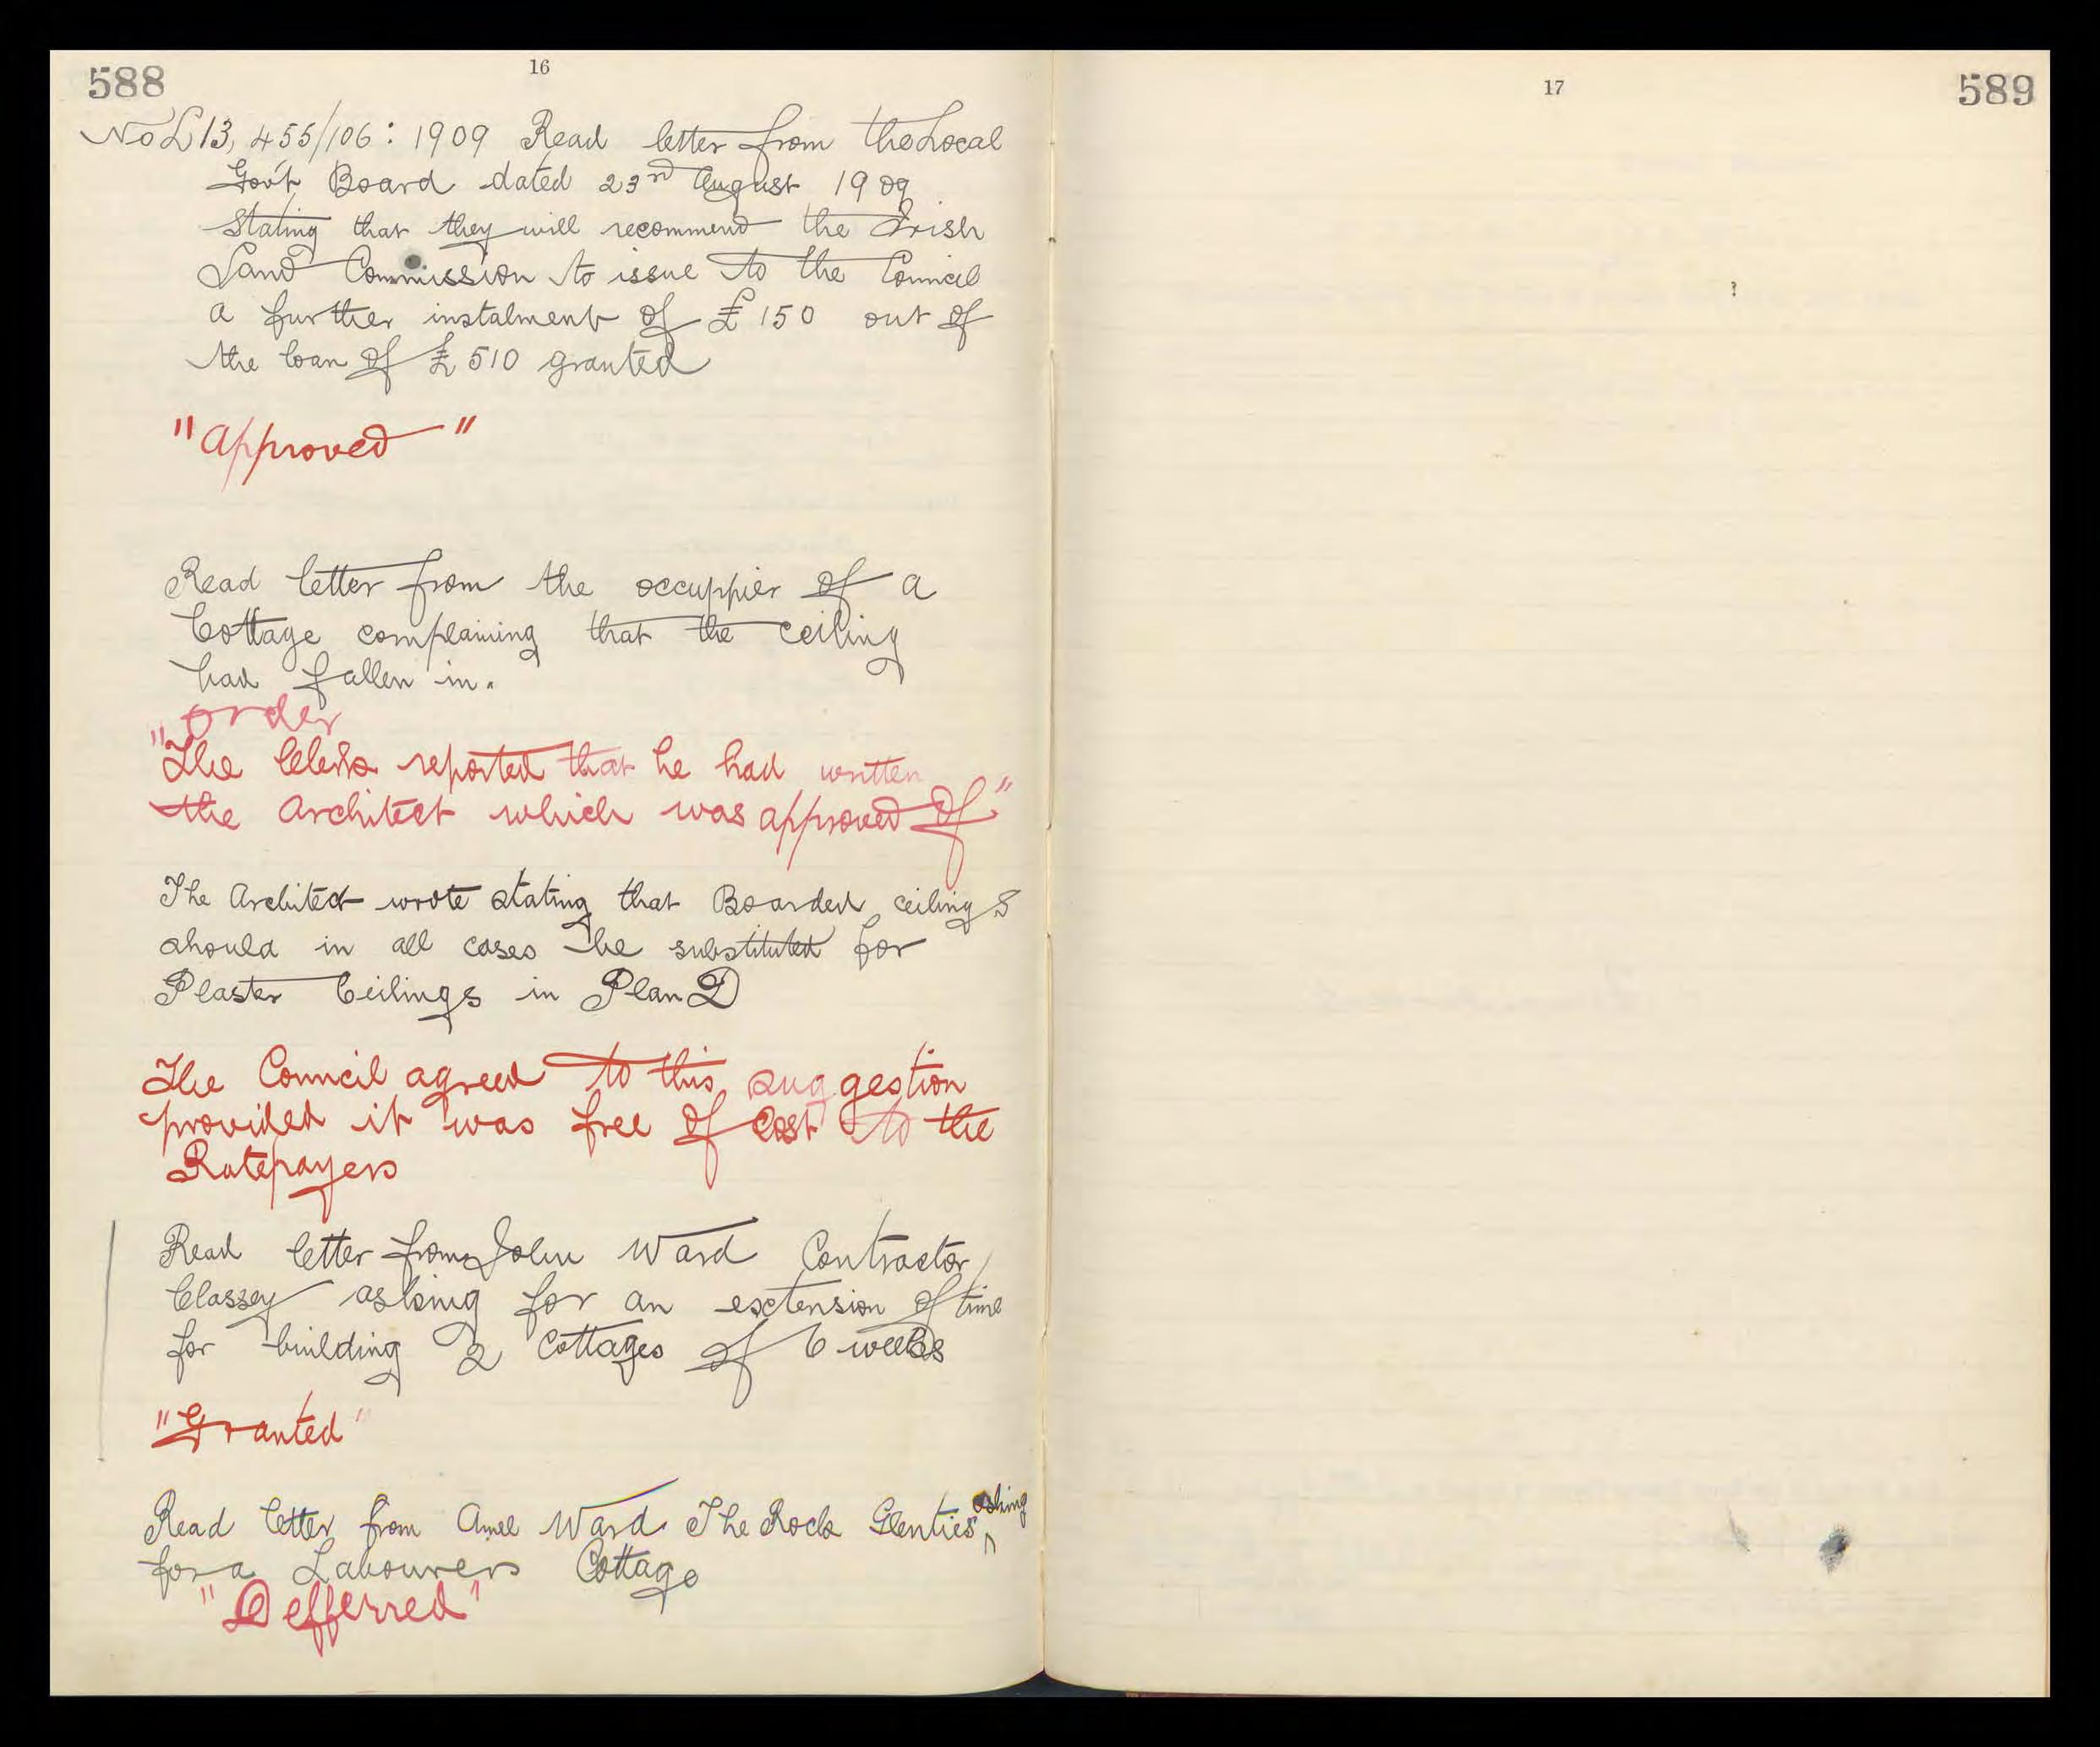 588
16
No L 13,455/106: 1909 Read letter from the Local
Govt Board dated 23rd August 1909
stating that they will recommend the Irish
Land Commission to issue to the Council
a further instalment of £150 out of
the loan of £510 granted
"Approved"
Read letter from the occuppier of a
Cottage complaining that the ceiling
had fallen in.
order
"The Clerk reported that he had written
the Architect which was approved of"
The Architect wrote stating that Boarded ceilings
should in all cases be substituted for
Plaster Ceilings in Plan D
The Council agreed to this suggestion
provided it was free of cost to the
Ratepayers
Read letter from John Ward Contractor
Classey asking for an extension of time
for building 2 Cottages of 6 weeks
"Granted"
Read letter from Ward The Rock Glenties asking
for a Labourers Cottage
"Defferred"
17
589